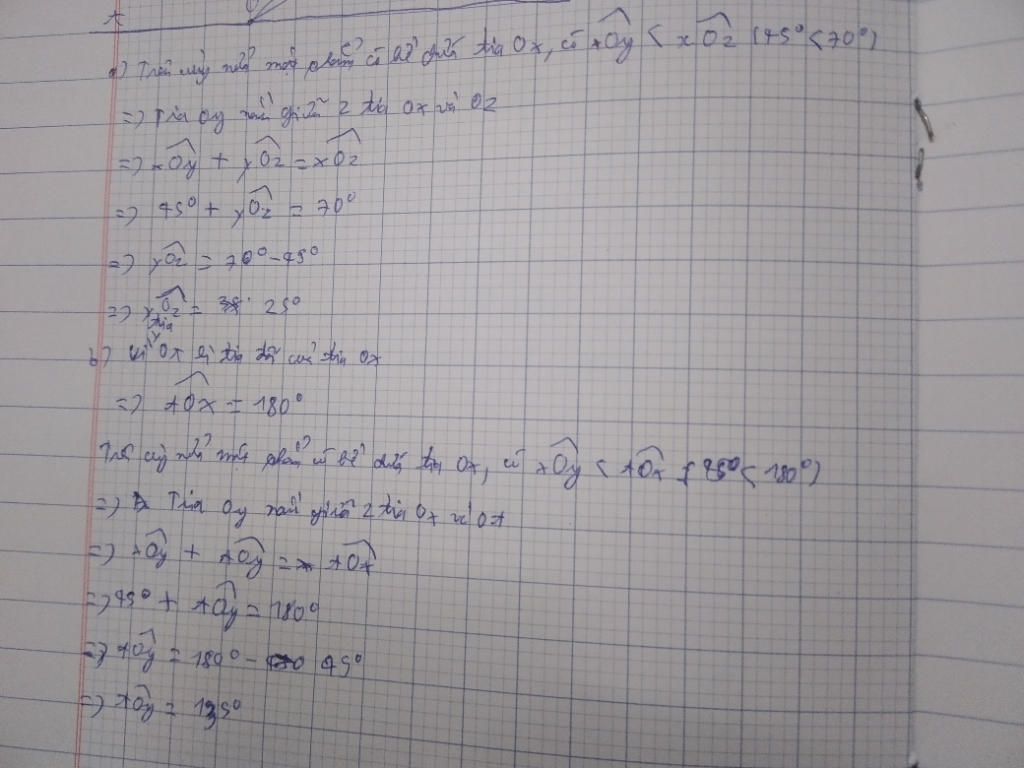 x
a) Trên cùng nửa mặt phẳng có bờ chứa tia Ox, có xÔy < xÔz (45° < 70°)
=> Tia Oy nằm giữa 2 tia Ox và Oz
=> xÔy + yÔz = xÔz
=> 45° + yÔz = 70°
=> yÔz = 70° - 45°
=> yÔz = 25°
b) Vì Ot là tia đối của tia Ox
=> tÔx = 180°
Trên cùng nửa mặt phẳng có bờ chứa tia Ox, có xÔy < tÔx (45° < 180°)
=> Tia Oy nằm giữa 2 tia Ox và Ot
=> xÔy + tÔy = tÔx
=> 45° + tÔy = 180°
=> tÔy = 180° - 45°
=> tÔy = 135°